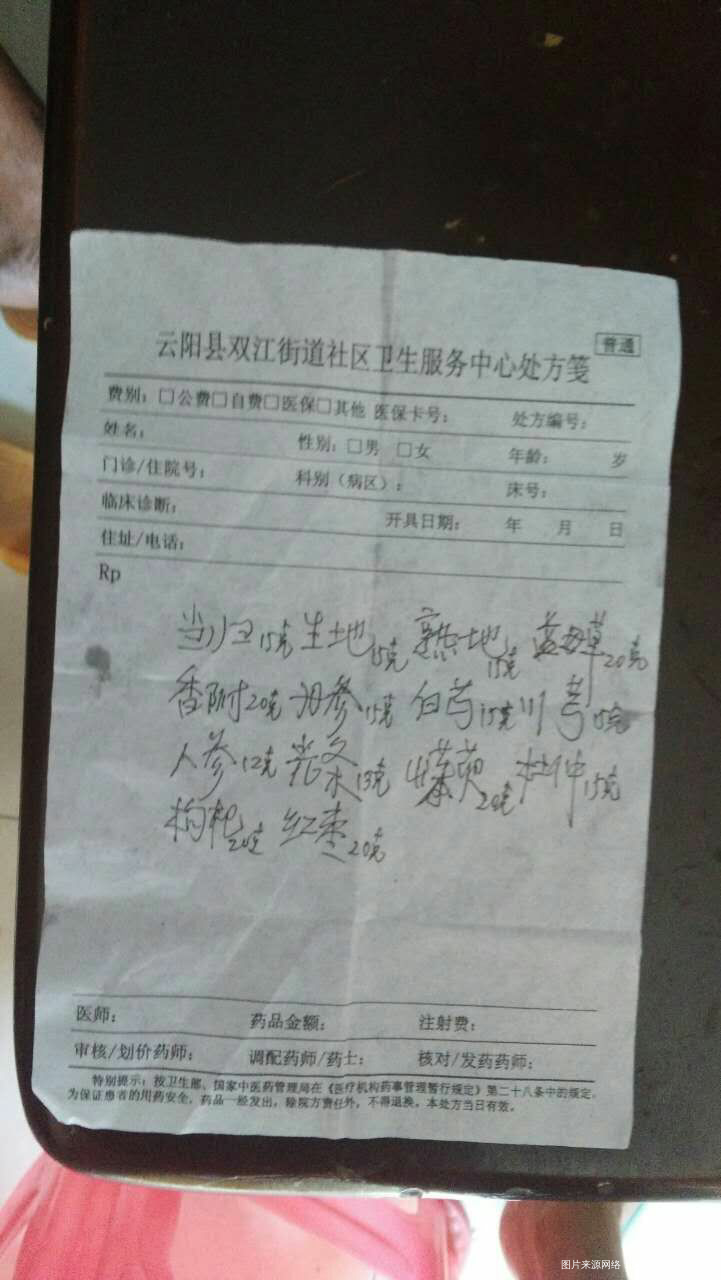 云阳县双江街道社区卫生服务中心处方笺 普通
费别：□公费□自费□医保□其他 医保卡号： 处方编号：
姓名： 性别：□男 □女 年龄： 岁
门诊/住院号： 科别（病区）： 床号：
临床诊断： 开具日期： 年 月 日
住址/电话：
Rp
当归15克 生地15克 熟地15克 益母草20克
香附20克 丹参15克 白芍15克 川芎15克
人参12克 13克 茱萸20克 杜仲15克
枸杞20克 红枣20克
医师： 药品金额： 注射费：
审核/划价药师： 调配药师/药士： 核对/发药药师：
特别提示：按卫生部、国家中医药管理局在《医疗机构药事管理暂行规定》第二十八条中的规定，
为保证患者的用药安全，药品一经发出，除院方责任外，不得退换。本处方当日有效。
图片来源网络